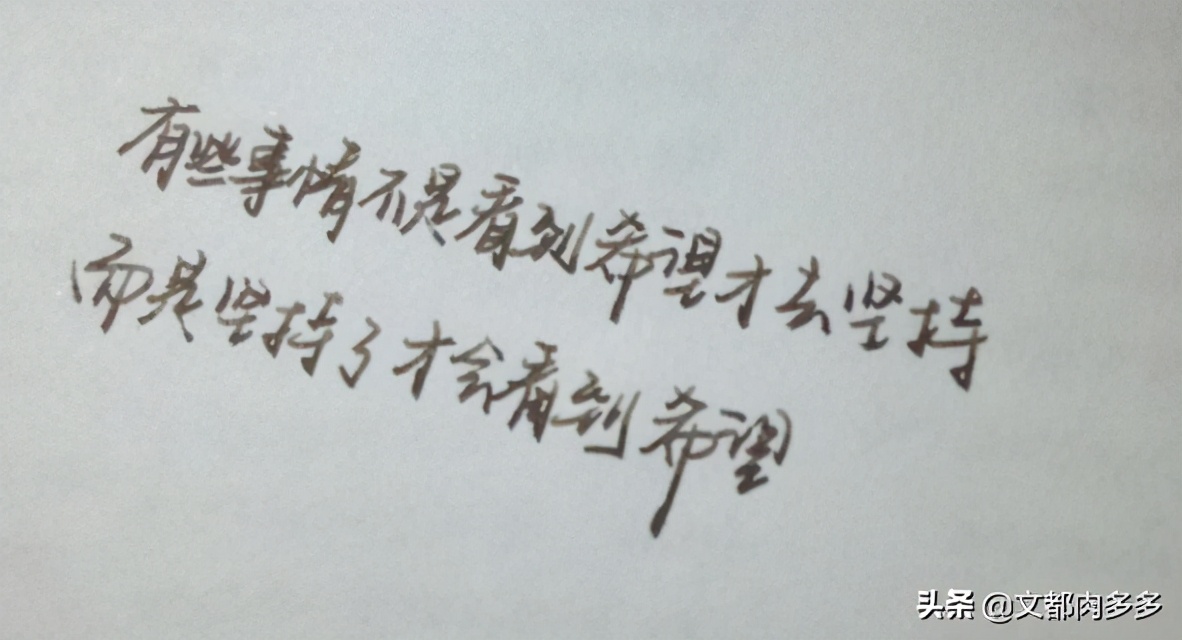 有些事情不是看到希望才去坚持
而是坚持了才会看到希望
头条 @文都肉多多